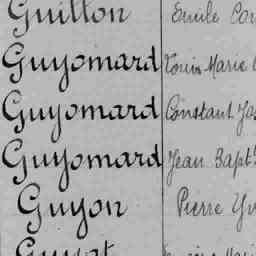 Guillon Emile
Guyomard Louis Marie
Guyomard Constant
Guyomard Jean Bapt
Guyon Pierre
Guyot